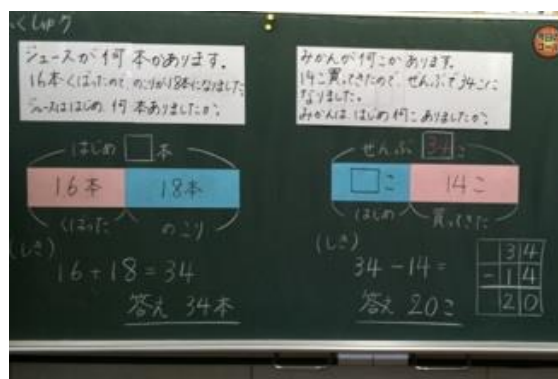 くしゅう
ジュースが何本かあります。
16本くばったので、のこりが18本になりました。
ジュースははじめ何本ありましたか。
はじめ □ 本
16本 18本
くばった のこり
(しき)
16+18=34
答え 34本
みかんが何こかあります。
14こ買ってきたので、ぜんぶで34こに
なりました。
みかんは はじめ何こありましたか。
ぜんぶ 34 こ
□こ 14こ
はじめ 買ってきた
(しき)
34-14=
答え 20こ
34
-14
20